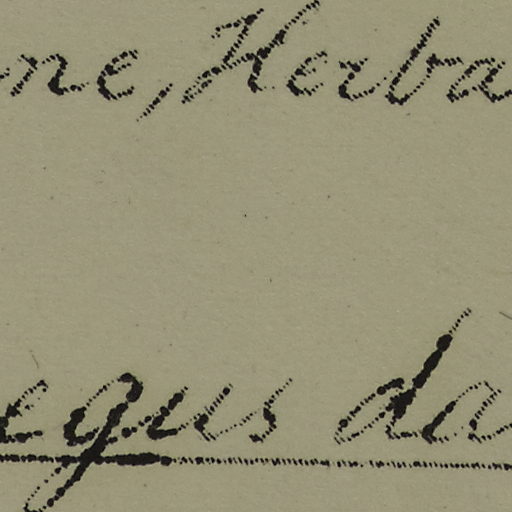 ne, Herba
egus da